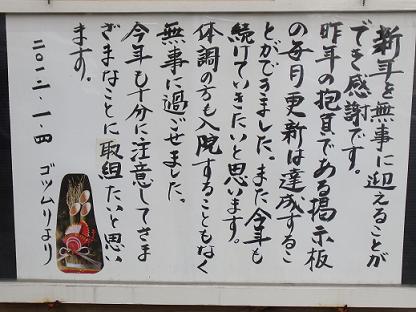 新年を無事に迎えることが
でき感謝です。
昨年の抱負である掲示板
の毎月更新は達成するこ
とができました。また今年も
続けていきたいと思います。
体調の方も入院することもなく
無事に過ごせました。
今年も十分に注意してさま
ざまなことに取組たいと思い
ます。
二〇二二・一・四 ゴツムリより